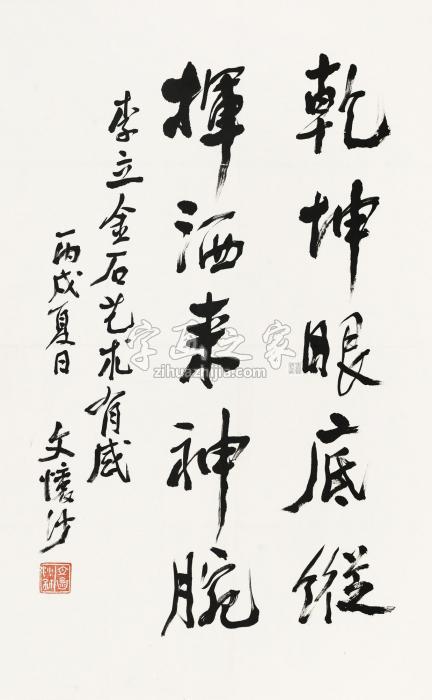 乾坤眼底縱
揮洒来神腕
李立金石艺术有感
丙戌夏日 文懷沙
字画之家
zihuazhijia.com